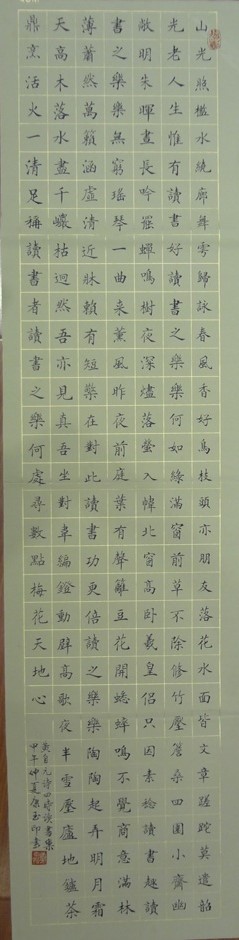 山光照檻水繞廊舞雩歸詠春風香好鳥枝頭亦朋友落花水面皆文章蹉跎莫遣韶
光老人生惟有讀書好讀書之樂樂何如綠滿窗前草不除修竹壓簷桑四圍小齋幽
敞明朱暉晝長吟罷蟬鳴樹夜深燼落螢入幃北窗高臥羲皇侶只因素稔讀書趣讀
書之樂樂無窮瑤琴一曲來薰風昨夜前庭葉有聲籬豆花開蟋蟀鳴不覺商意滿林
薄蕭然萬籟涵虛清近牀賴有短檠在對此讀書功更倍讀之樂樂陶陶起弄明月霜
天高木落水盡千巖枯迥然吾亦見真吾坐對韋編鐙動壁高歌夜半雪壓廬地鑪茶
鼎烹活火一清足稱讀書者讀書之樂何處尋數點梅花天地心
黄自元詩四時读書樂
甲午仲夏康玉印書